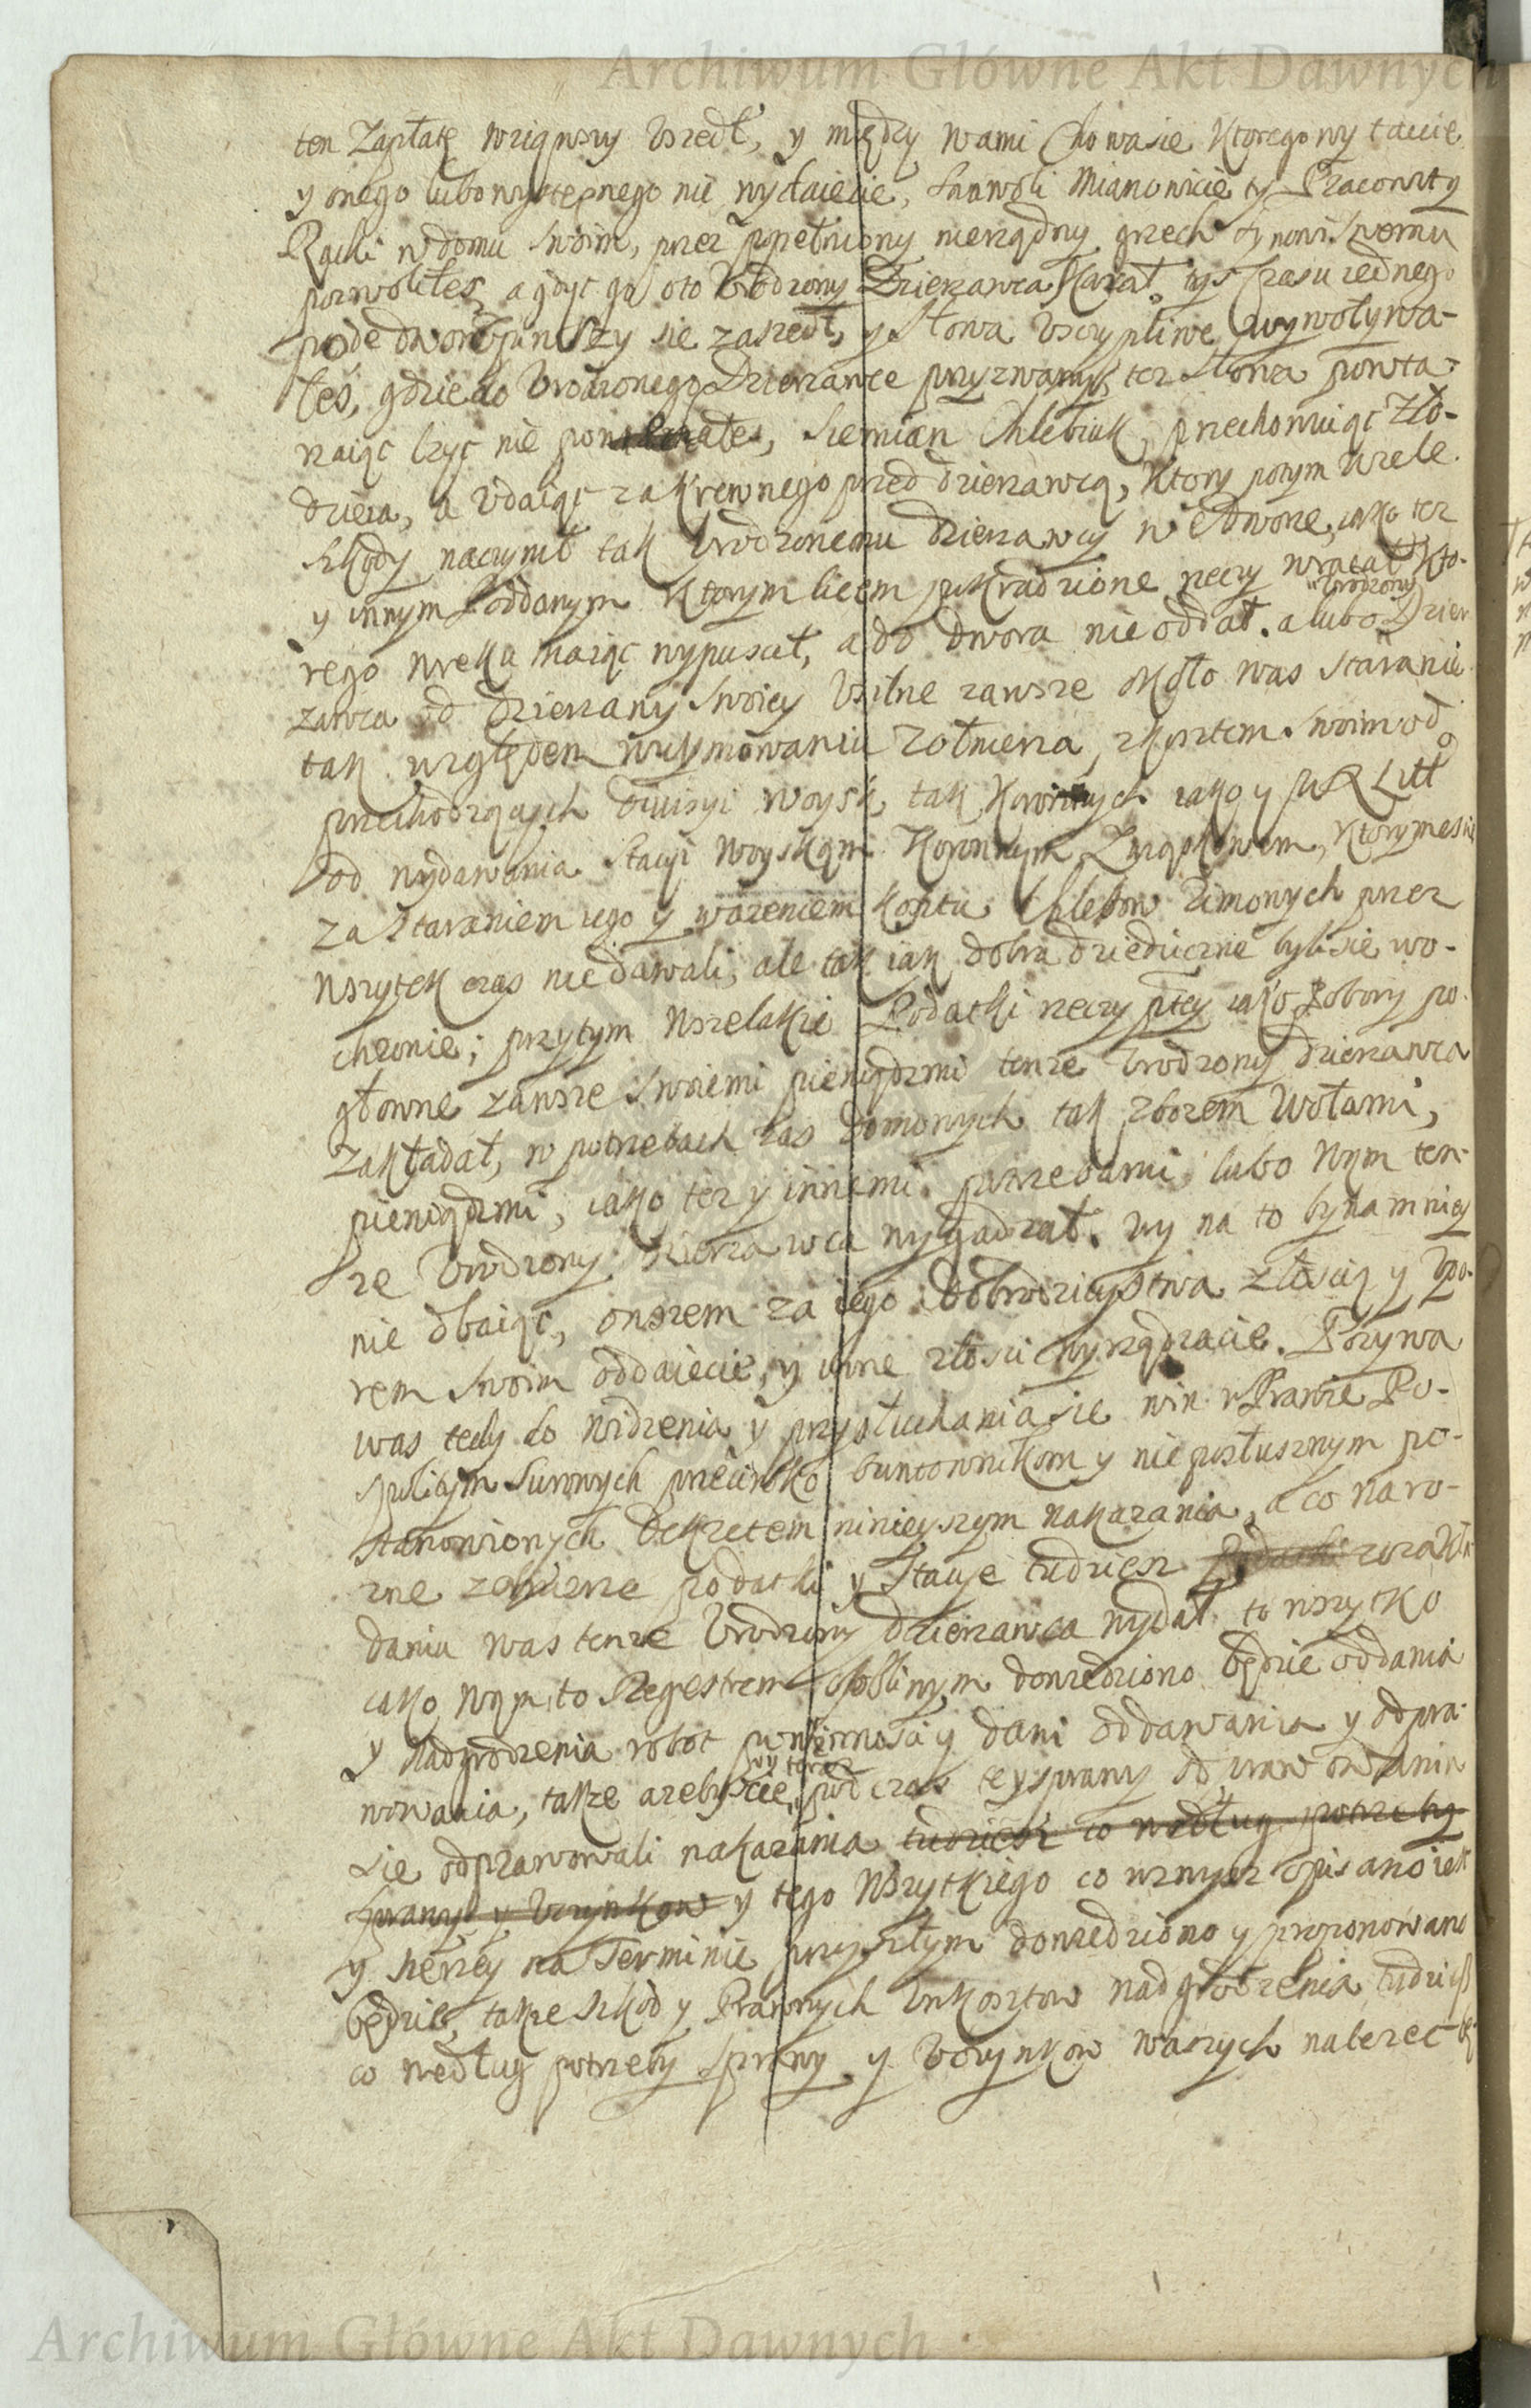 Archiwum Główne Akt Dawnych
ten Zapłatę wziąwszy uszedł, y między wami Chowa sie Ktorego wy taicie
y onego lubo występnego nie wydaiecie, Sam woli Mianowicie ty Pracowity
Racki w domu swoim, przez popełniony nierządny grzech synowi Swemu
pozwoliłes, a gdyc go oto Urodzony Dzierzawca Karał, tys Czasu iednego
pode dwor sie zaszedł, y Słowa Usczypliwe wywoływa-
łes, gdzie do Urodzonego Dzierzawce przyzwany tez słowa powta-
rzaiąc lzyc nie, Siemian Chlebiuk, przechowuiąc Zło-
dzieia, a Udaiąc za Krewnego przed dzierzawcą, Ktory potym Wiele
szkody naczynił tak Urodzonemu Dzierzawcy we Dworze, iako tez
y innym Poddanym Ktorym licem pokradzione rzeczy wracał Kto-
rego w ręku maiąc wypuscił, a do dwora nie oddał. a lubo Urodzony Dzier
zawca od Dzierzawy Swoiey Usilne zawsze około was staranie
tak względem wuymowania Zołnierza, z kosztem swoim od
przechodzących diwisyi Woysk, tak Koronnych iako y W X Litt
od wydawania Stacyi Woyskom Koronnym Związkowem, Ktorymesie
za staraniem iego y wazeniem kosztu Chlebow Zimowych przez
wszytek czas nie dawali, ale tak iak dobra dziedziczne bylisie wo-
chronie; przytym Wszelakie Podatki rzeczy ptey iako Pobory po-
głowne zawsze swoiemi pieniądzmi tenze Urodzony dzierzawca
Zakładał, w potrzebach zas domowych tak zbozem Wołami,
pieniądzmi, iako tez y innemi potrzebami lubo Wym ten-
ze Urodzony Dzierzawca wygadzał. wy na to bynamniey
nie dbaiąc, owszem za iego Dobrodzieystwa złoscią y Upo-
rem swoim oddaiecie, y inne złosci wyrządzacie. Pozywa
was tedy do widzenia y przysłuchania sie win w Prawie Po-
spolitym Surowych przeciwko buntownikom y nieposłusznym po-
stanowionych Dekretem ninieyszym nakazania, a co na ro-
zne zownie podatki y Stacye tudziesz
dania was tenze Urodzony Dzierzawca wydał to wszytko
iako Wym to Regestrem osoblinym dowiedziono będzie oddania
y Nadgrodzenia robot powinnosci y dani oddawania y odpra-
wowania, takze azebyscie wy teraz pod czas tey sprawy odprawowania
sie odprawowali nakazania tudziesz co według potrzeby
sprawy y Uczynkow y tego Wszytkiego co wzwysz opisano iest
y szerzey na Terminie przyszłym dowiedziono y proponowano
będzie, takze szkod y Prawnych Unkosztow nadgrodzenia, tudziesz
co według potrzeby sprawy y Uczynkow waszych nalezec bę-
Archiwum Główne Akt Dawnych